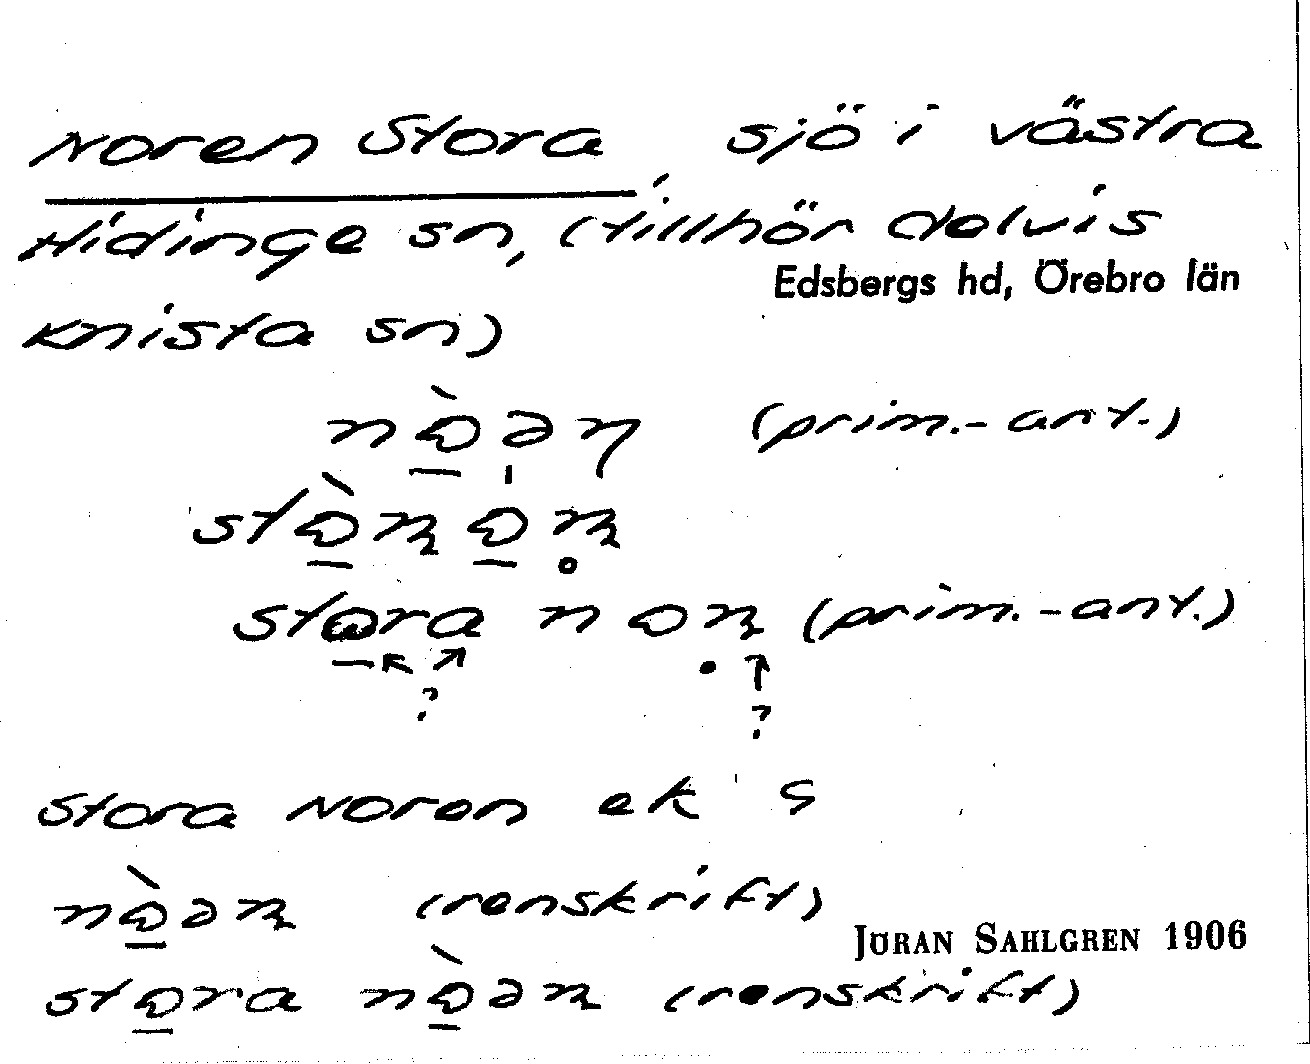 Noren Stora, sjö i västra
Hidinge sn, (tillhör delvis
Edsbergs hd, Örebro län
Knista sn)
(prim.-ant.)
stora (prim.-ant.)
?
?
Stora Noren ek 9
(renskrift)
JÖRAN SAHLGREN 1906
(renskrift)